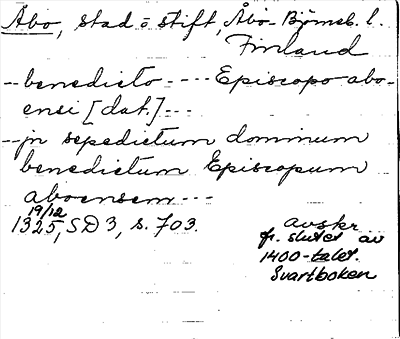 Åbo, stad o stift, Åbo-Björneb. l.
Finland
-- benedicto ---- Episcopo abo-
ensi [dat.] ---
-- jn sepedictum dominum
benedictum Episcopum
aboensem ---
19/12
1325, SD 3, s. 703.
avskr.
fr. slutet av
1400-talet.
Svartboken